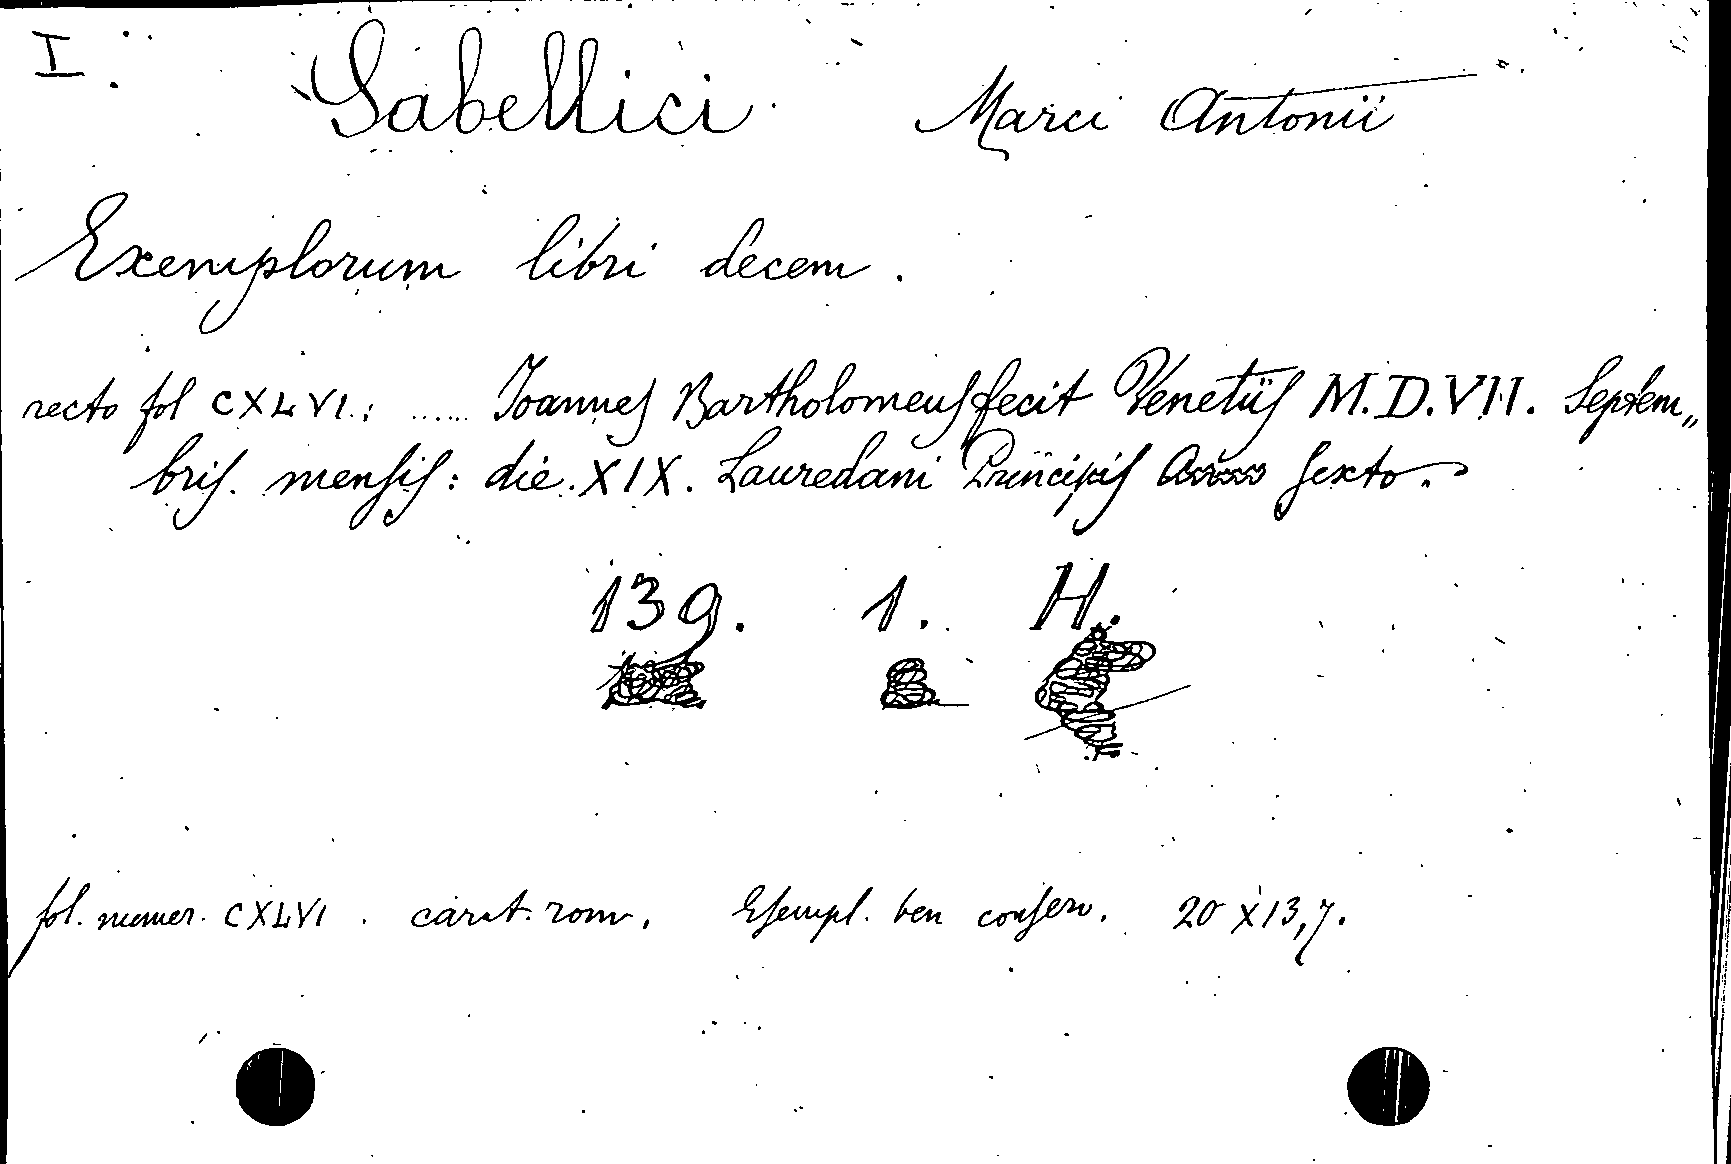 I.
Sabellici Marci Antonii
Exemplorum libri decem.
recto fol CXLVI: ...... Joannes Bartholomeus fecit Venetiis M.D.VII. Septem„
bris. mensis: die. XIX. Lauredani Principis sexto.
139. 1. H.
fol. numer. CXLVI. carat. rom. Esempl. ben conserv. 20 x 13,7.